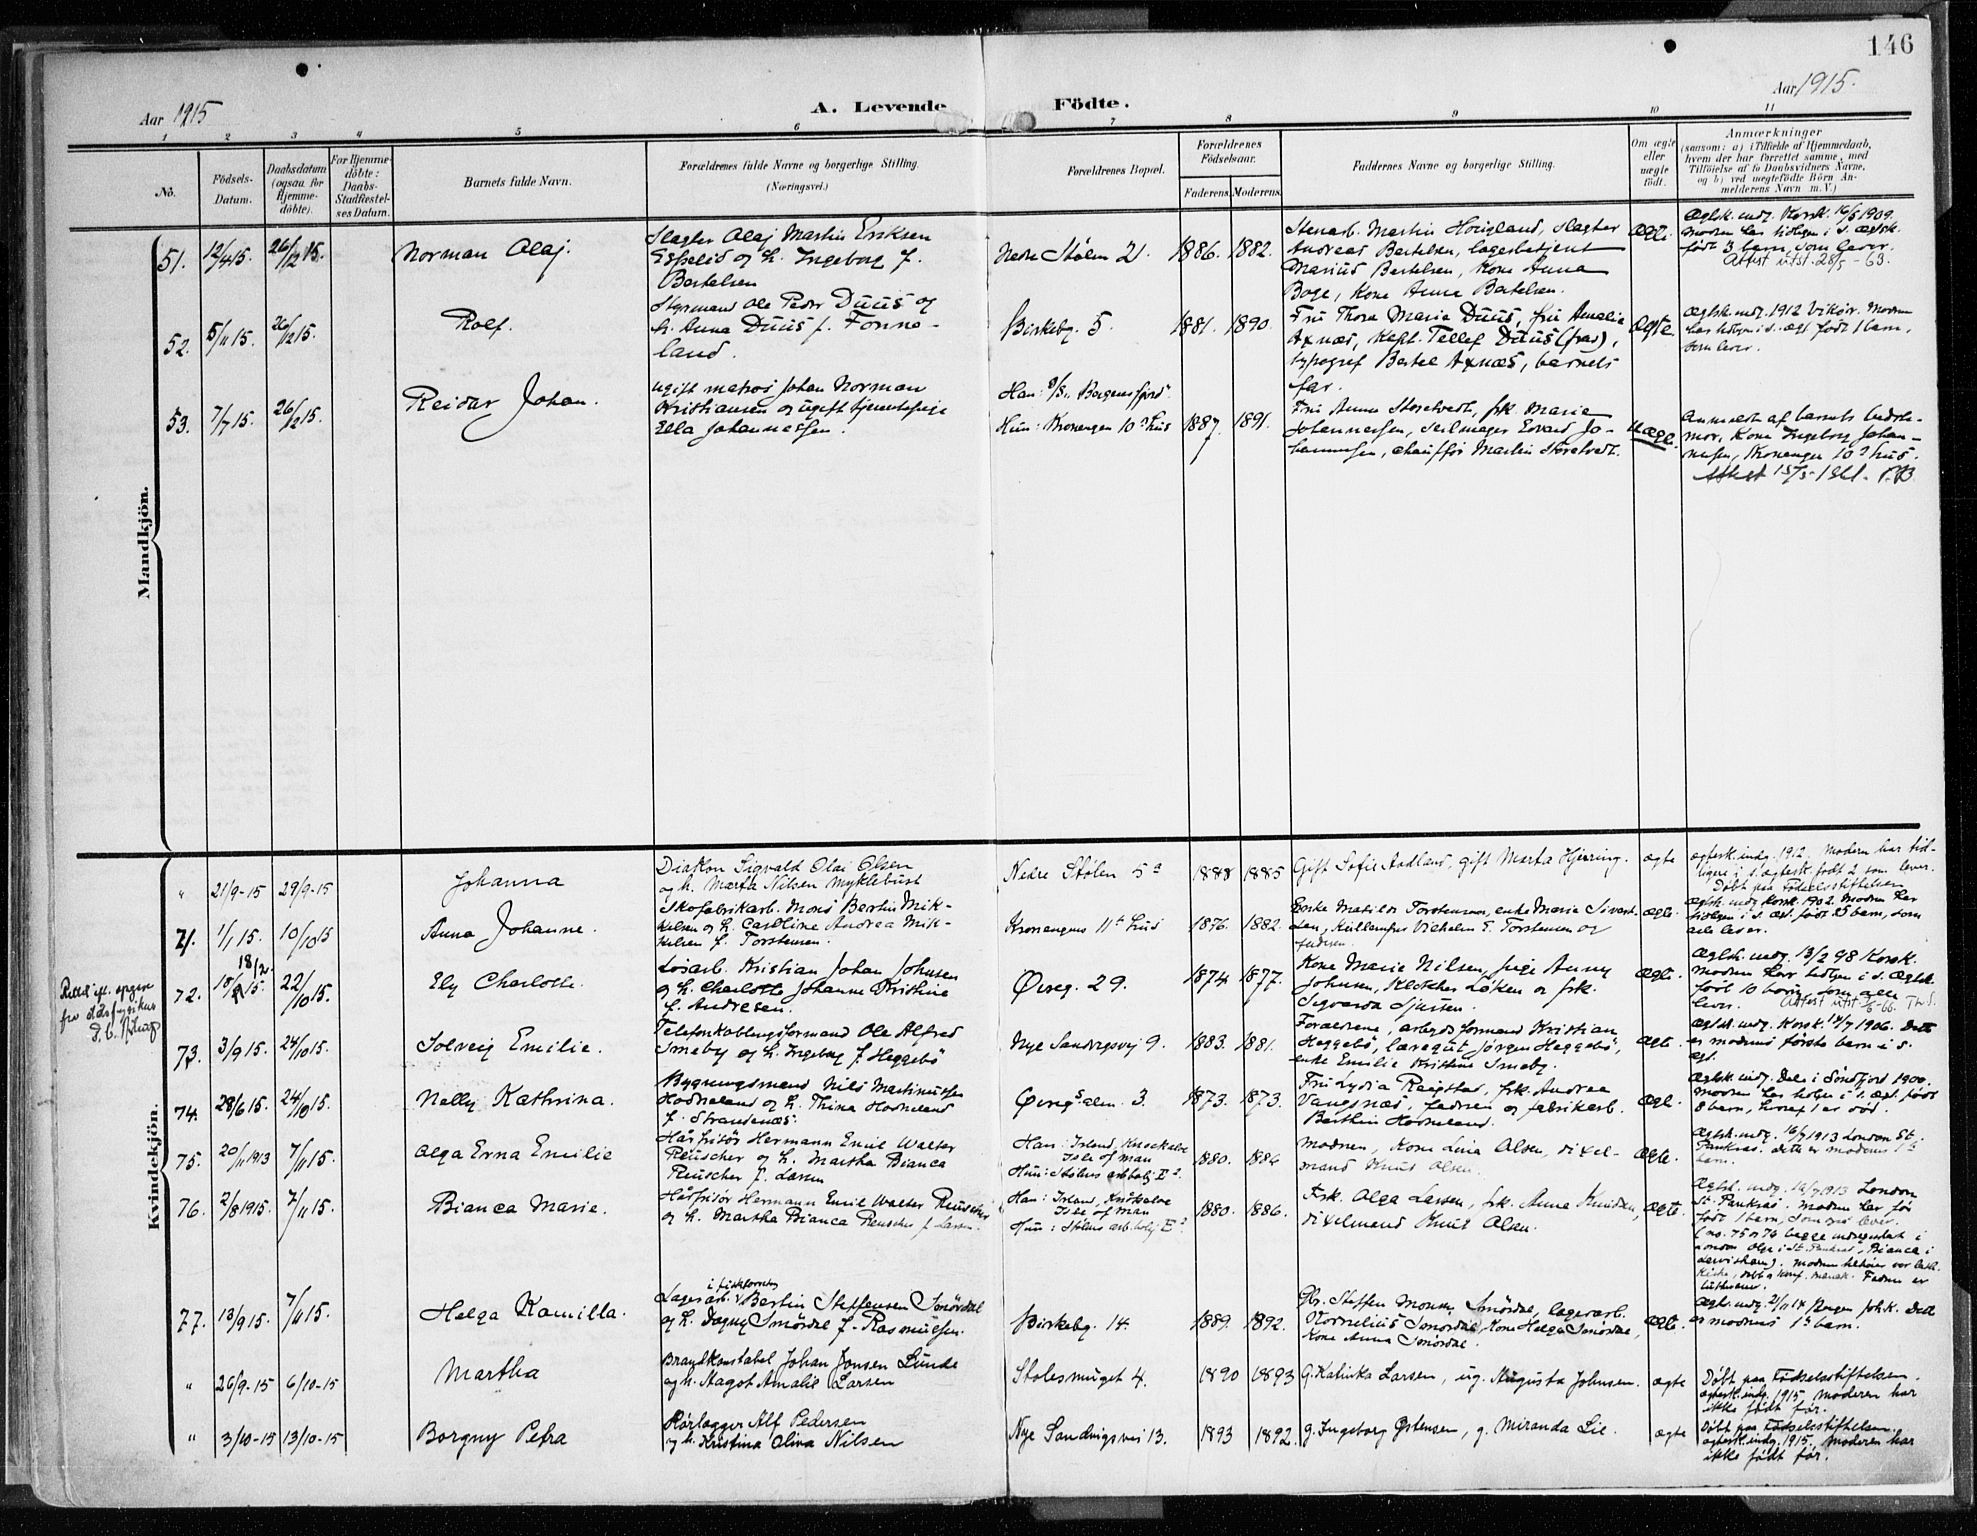 146
Aar 1915
A. Levende Födte.
Aar 1915.
1 2 3 4 5 6 7 8 9 10 11
No.
Födsels-Datum.
Daabsdatum (ogsaa for Hjemme-döbte).
For Hjemme-döbte: Daabs-Stadfæstel-ses Datum.
Barnets fulde Navn.
Forældrenes fulde Navne og borgerlige Stilling. (Næringsvei.)
Forældrenes Bopæl.
Forældrenes Födselsaar.
Faderens. Moderens.
Faddernes Navne og borgerlige Stilling.
Om ægte eller uægte födt.
Anmærkninger
(saasom: a) i Tilfælde af Hjemmedaab, hvem der har forrettet samme, med Tilföielse af to Daabsvidners Navne, og b) ved uægtefödte Börn An-melderens Navn m. V.)
Mandkjön.
51. 12/4 15. 26/12 15. Norman Olaf.
Slagter Olaf Martin Eriksen
Espelid og h. Ingeborg f.
Bertelsen
Nedre Stølen 21. 1886. 1882.
Stenarb. Martin Hougland, slagter
Andreas Bertelsen, lagerbetjent
Marius Bertelsen, Kone Anna
Boge, Kone Anna Bertelsen.
Ægte.
Ægtsk. indg. Korsk. 16/5 1909.
Modren har tidligere i s. ægtsk.
født 3 barn, som lever.
Attest utst. 28/5 - 63.
52. 5/11 15. 26/12 15. Rolf.
Styrmand Ole Peder Duus og
h. Anna Duus f. Fonne-
land.
Birkebg. 5 1881. 1890.
Fru Thora Maria Duus, fru Amalia
Axnæs, Kapt. Tellef Duus (frav),
typograf Bertel Axnæs, barnets
far.
Ægte.
Ægtsk. indg. 1912 Vikør. Modren
har tidligere i s. ægt. født 1 barn,
som lever.
53. 7/7 15. 26/12 15. Reidar Johan.
Ugift matros Johan Norman
Kristiansen og ugift tjenestepige
Ella Johannessen.
Han: S/S "Bergensfjord"
Hun: Kronengen 10 a hus 1887. 1891.
Fru Anna Storetvedt, frk. Marie
Johannessen, seilmager Edvard Jo-
hannessen, chauffør Martin Storetvedt.
Uægte.
Anmeldt af barnets bedste-
mor, Kone Ingeborg Johan-
nessen, Kronengen 10 a hus.
Attest 15/5-1961.
Kvindekjön.
" 21/9-15 29/9-15 Johanna
Diakon Sigvald Olai Olsen
og h. Marta Nilsen Myklebust
Nedre Stølen 5 a 1888 1885
Gift Sofie Aadland, gift Marta Hjerring. ægte
ægtesk. indg. 1912. Modern har tid-
ligere i s. ægtesk. født 2 som lever.
Døbt paa Fødselsstiftelsen
71. 1/1 15. 10/10 15 Anna Johanne.
Skofabrikarb. Mons Bertin Mik-
kelsen og h. Caroline Andrea Mik-
kelsen f. Torstensen.
Kronengens 11te hus 1876. 1882.
Enke Matilde Torstensen, enke Marie Sivert-
sen, Vilhelm E. Torstensen og
fadren.
ægte.
Ægtsk. indg. Korsk. 1902. Modren har
tidligere i s. ægt. født 5 barn, som
alle lever.
72. 18/2 15. 22/10 15. Ely Charlotte.
Losarb. Kristian Johan Johnsen
og h. Charlotte Johanne Kristine
f. Andresen.
Øvreg. 29. 1874 1877.
Kone Marie Nilsen, pige Anny
Johnsen, Klokker Løken og frk.
Sigvarda Sjursen.
Ægte.
Ægtsk. indg. 13/2 98 Korsk.
Modren har tidligere i s. ægtsk.
født 10 barn, som alle
lever. Attest utst
73. 3/9 15. 24/10 15. Solveig Emilie.
Telefonkoblingsformand Ole Alfred
Smeby og h. Ingeborg f. Heggebø
Nye Sandvigsvej 9. 1883. 1881.
Forældrene, arbejdsformand Kristian
Heggebø, læregut Jørgen Heggebø,
enke Emilie Kristine Smeby.
ægte.
Ægtsk. indg. Korsk. 14/7 1906. Dette
er modrens første barn i s.
ægt.
74. 28/6 15. 24/10 15. Nelly Kathrina.
Bygningsmand Nils Martinussen
Hodneland og h. Thina Hodneland
f. Strandenæs.
Øvregsalm. 3. 1873. 1873.
Fru Lydia Raigstad, frk. Andrea
Vangsnæs, fadren og fabrikarb.
Berthin Hodneland.
Ægte.
Ægtsk. indg. Dale i Søndfjord 1900.
Modren har tidligere i s. ægt. født
8 barn, hvoraf 1 er død.
75. 20/11 1913 7/11 15. Olga Erna Emilie
Hårfrisør Hermann Emil Walter
Reuscher og h. Martha Bianca
Reuscher f. Larsen
Han: Irland, Knockaloe
Isle of Man
Hun: Stølens arbbolig E 2. 1880. 1886
Modren, Kone Lina Olsen, dixel-
mand Knut Olsen.
Ægte.
Ægtsk. indg. 16/9 1913 London St.
Pankras. Dette er modrens 1ste
barn.
76. 2/8 1915. 7/11 15. Bianca Marie.
Hårfrisør Hermann Emil Walter Reuscher
og h. Martha Bianca Reuscher f. Larsen.
Han: Irland, Knokaloe
Isle of Man
Hun: Stølens arb.bolig E 2. 1880. 1886.
Frk. Olga Larsen, frk. Anna Knudsen,
dixelmand Knut Olsen.
ægte.
Ægtsk. indg. 16/9 1913 London
St. Pankras. Modren har før
født 1 barn, som og lever.
(no. 75 og 76 begge indregistrert i
London Olga i St. Pankras, Bianca i
Lewisham).
77. 13/9 15. 7/11 15. Helga Kamilla.
Lagerarb. i fisktorvet Bertin Steffensen Smördal
og h. Dagny Smørdal f. Rasmussen.
Birkebg. 14. 1889. 1892.
Gbr. Steffen Monsen Smørdal, lagerarb.
Kornelius Smørdal, Kone Helga Smørdal,
Kone Anna Smørdal.
Ægte.
Ægtsk. indg. 2/11 14 Bergen Joh.k. Dette
er modrens 1ste barn.
" 26/9-15 6/10-15 Martha
Brandkonstabel Johan Jonsen Lunde
og h. Magot Amalie Larsen
Stølesmuget 4. 1890 1893
G. Katinka Larsen, ug. Augusta Johnsen. ægte
Døbt paa Fødselsstiftelsen.
ægtesk. indg. 1915. Moderen har
ikke født før.
" 3/10-15 13/10-15 Borgny Petra
Rørlægger Alf Pedersen
og h. Kristina Oliva Nilsen
Nye Sandvigsvei 13. 1893 1892
g. Ingeborg Østensen, g. Miranda Lie. ægte
Døbt paa Fødselsstiftelsen
ægtesk. indg. 1915. Moderen har
ikke født før.